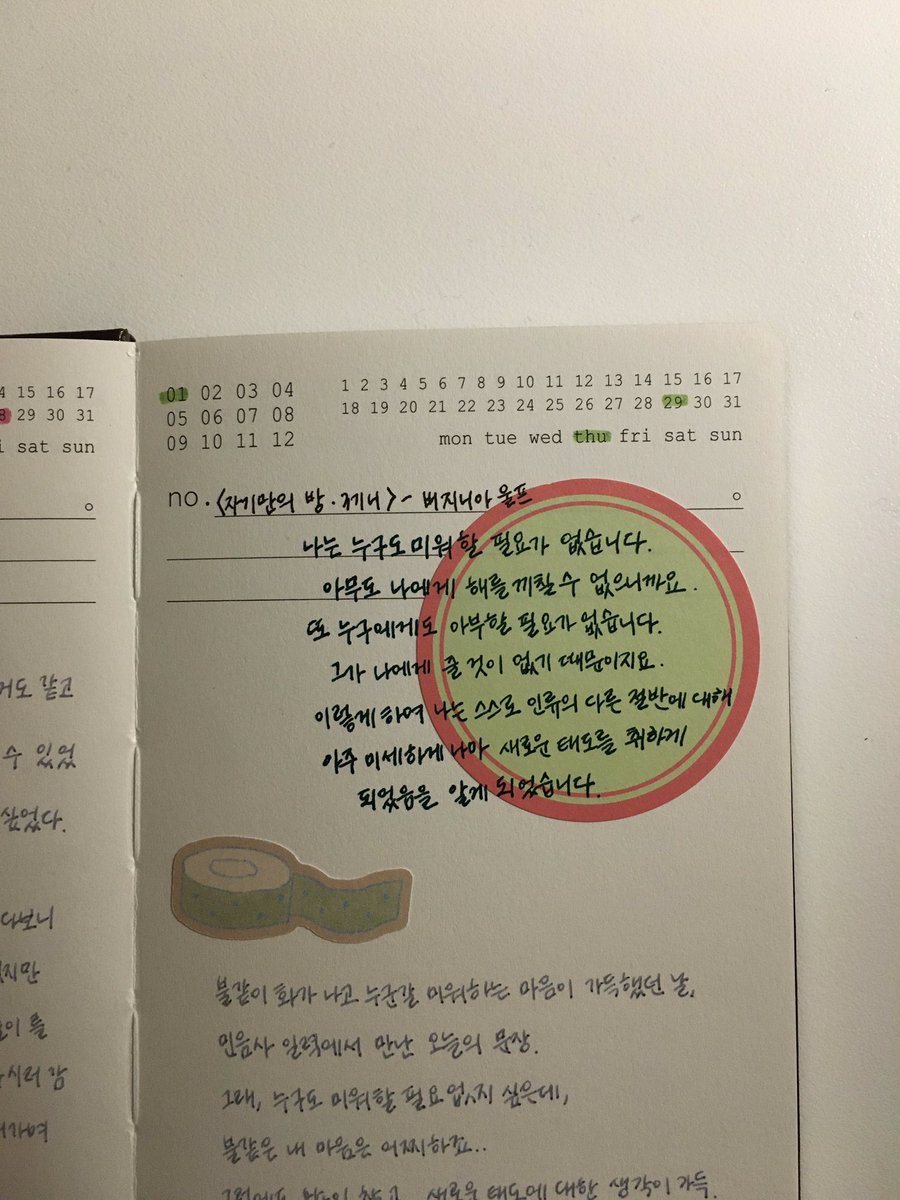 4 15 16 17
8 29 30 31
i sat sun
거도 같고
수 있었
싶었다.
다보니
지만
를
시러 감
01 02 03 04
05 06 07 08
09 10 11 12
1 2 3 4 5 6 7 8 9 10 11 12 13 14 15 16 17
18 19 20 21 22 23 24 25 26 27 28 29 30 31
mon tue wed thu fri sat sun
no. <자기만의 방·3기니> - 버지니아 울프
나는 누구도 미워할 필요가 없습니다.
아무도 나에게 해를 끼칠 수 없으니까요.
또 누구에게도 아부할 필요가 없습니다.
그가 나에게 줄 것이 없기 때문이지요.
이렇게 하여 나는 스스로 인류의 다른 절반에 대해
아주 미세하게나마 새로운 태도를 취하게
되었음을 알게 되었습니다.
불같이 화가 나고 누군갈 미워하는 마음이 가득했던 날,
민음사 일력에서 만난 오늘의 문장.
그래, 누구도 미워할 필요 없지 싶은데,
불같은 내 마음은 어찌하죠..
새로운 태도에 대한 생각이 가득.